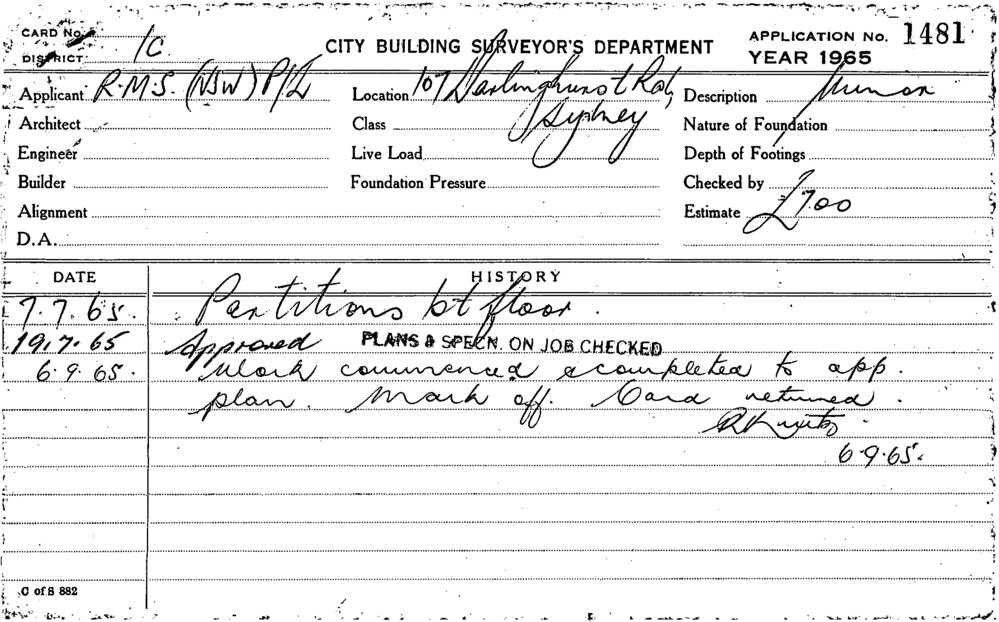 CARD No.
DISTRICT 1C
CITY BUILDING SURVEYOR'S DEPARTMENT
APPLICATION No. 1481
YEAR 1965
Applicant R.M.S. (NSW) P/L
Location 107 Darlinghurst Rd, Sydney
Description Minor
Architect
Class
Nature of Foundation
Engineer
Live Load
Depth of Footings
Builder
Foundation Pressure
Checked by
Alignment
Estimate £700
D.A.
DATE HISTORY
7.7.65. Partitions 1st floor.
19.7.65 Approved PLANS & SPECN. ON JOB CHECKED
6.9.65. Work commenced & completed to app.
plan. Mark off. Card returned.
6.9.65.
C of S 882